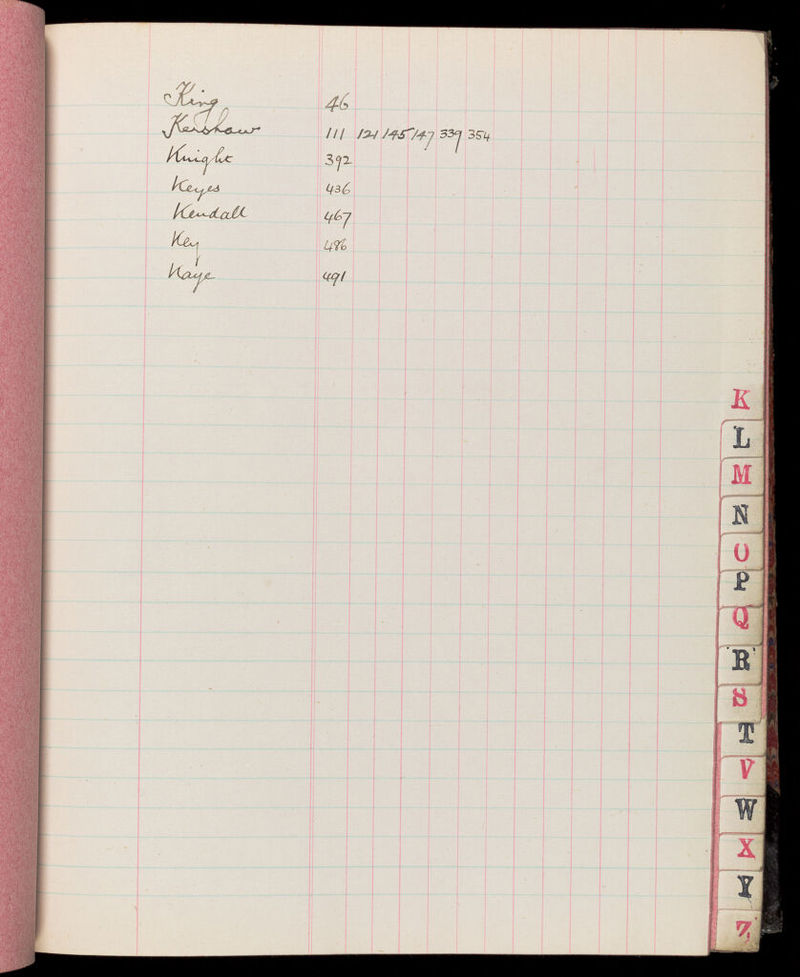 King 46
Kershaw 111 121 145 147 339 354
Knight 392
Keyes 436
Kendall 467
Key 486
Kaye 491
K
L
M
N
O
P
Q
R
S
T
V
W
X
Y
Z